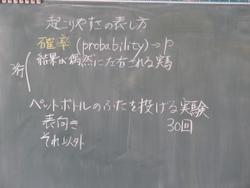 起こりやすさの表し方
確率(probability)→p
結果が偶然に左右される実
ペットボトルのふたを投げる実験
表向き 30回
それ以外